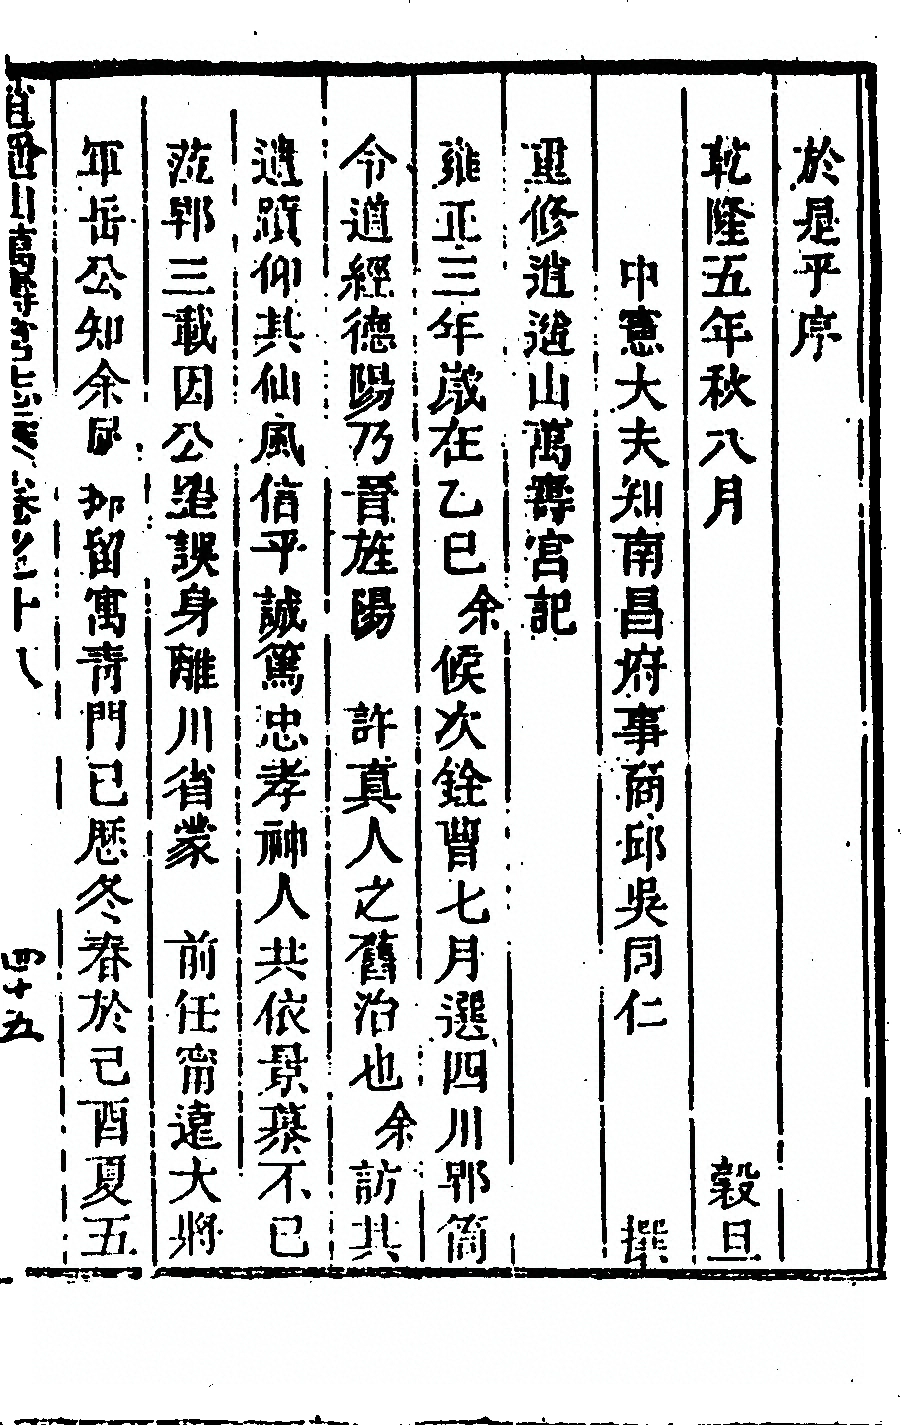 於是乎序
乾隆五年秋八月　穀旦
中憲大夫知南昌府事商邱吳同仁　撰
重修逍遙山萬壽宮記
雍正三年歲在乙巳余候次銓曹七月選四川郫筒
令道經德陽乃晉旌陽　許真人之舊治也余訪其
遺蹟仰其仙風信乎誠篤忠孝神人共依景慕不已
蒞郫三載因公罣誤身離川省蒙　前任甯遠大將
軍岳公知余居　邺留寓青門已歷冬春於己酉夏五
逍遙山萬壽宮志　卷之十八
四十五